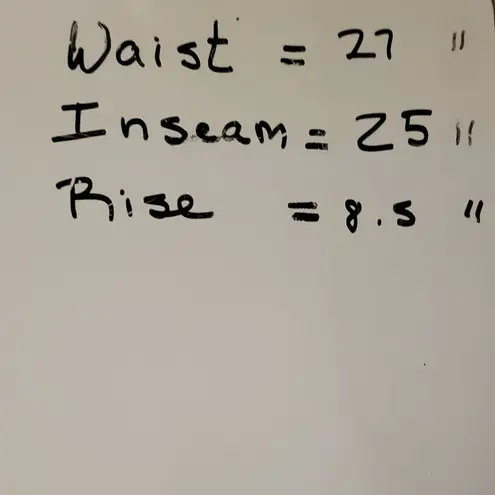 Waist = 27 "
Inseam = 25 "
Rise = 8.5 "